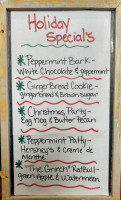 Holiday
Specials
Peppermint Bark-
White Chocolate & peppermint
GingerBread Cookie-
gingerbread & Brown sugar
Christmas Party-
Egg Nog & Butter Pecan
Peppermint Patty-
Hershey's & Creme de
Menthe
"The Grinch" RedBull-
green Apple & Watermelon